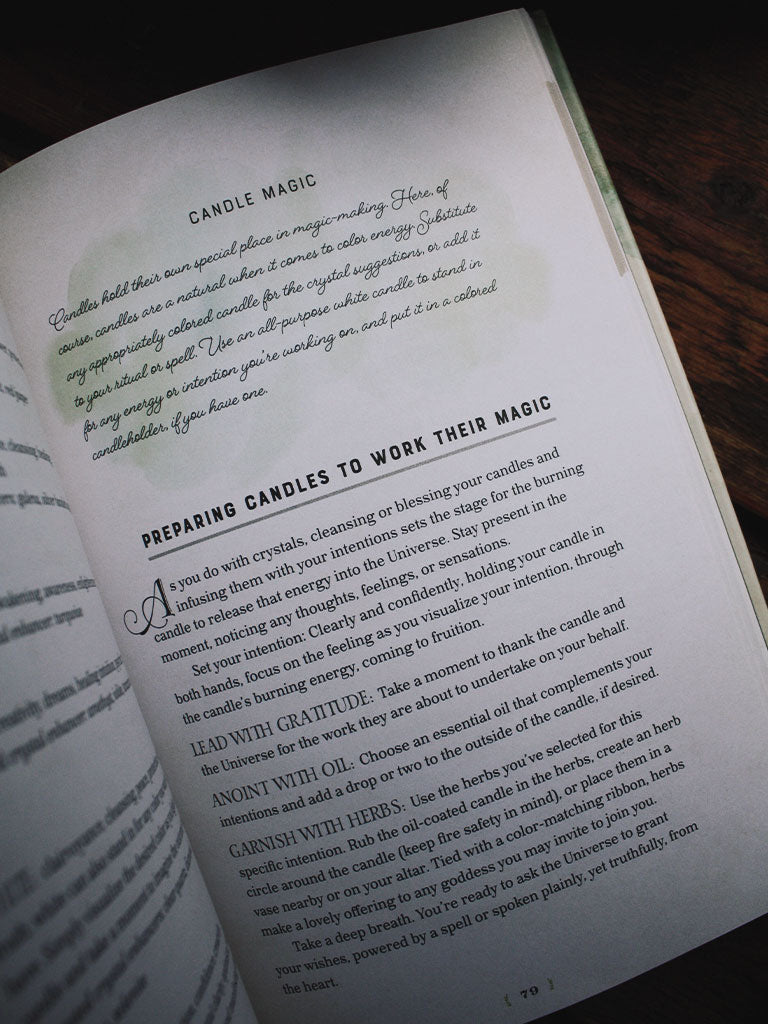 CANDLE MAGIC
Candles hold their own special place in magic-making. Here, of
course, candles are a natural when it comes to color energy. Substitute
any appropriately colored candle for the crystal suggestions, or add it
to your ritual or spell. Use an all-purpose white candle to stand in
for any energy or intention you're working on, and put it in a colored
candleholder, if you have one.
PREPARING CANDLES TO WORK THEIR MAGIC
As you do with crystals, cleansing or blessing your candles and
infusing them with your intentions sets the stage for the burning
candle to release that energy into the Universe. Stay present in the
moment, noticing any thoughts, feelings, or sensations.
Set your intention: Clearly and confidently, holding your candle in
both hands, focus on the feeling as you visualize your intention, through
the candle's burning energy, coming to fruition.
LEAD WITH GRATITUDE: Take a moment to thank the candle and
the Universe for the work they are about to undertake on your behalf.
ANOINT WITH OIL: Choose an essential oil that complements your
intentions and add a drop or two to the outside of the candle, if desired.
GARNISH WITH HERBS: Use the herbs you've selected for this
specific intention. Rub the oil-coated candle in the herbs, create an herb
circle around the candle (keep fire safety in mind), or place them in a
vase nearby or on your altar. Tied with a color-matching ribbon, herbs
make a lovely offering to any goddess you may invite to join you.
Take a deep breath. You're ready to ask the Universe to grant
your wishes, powered by a spell or spoken plainly, yet truthfully, from
the heart.
79